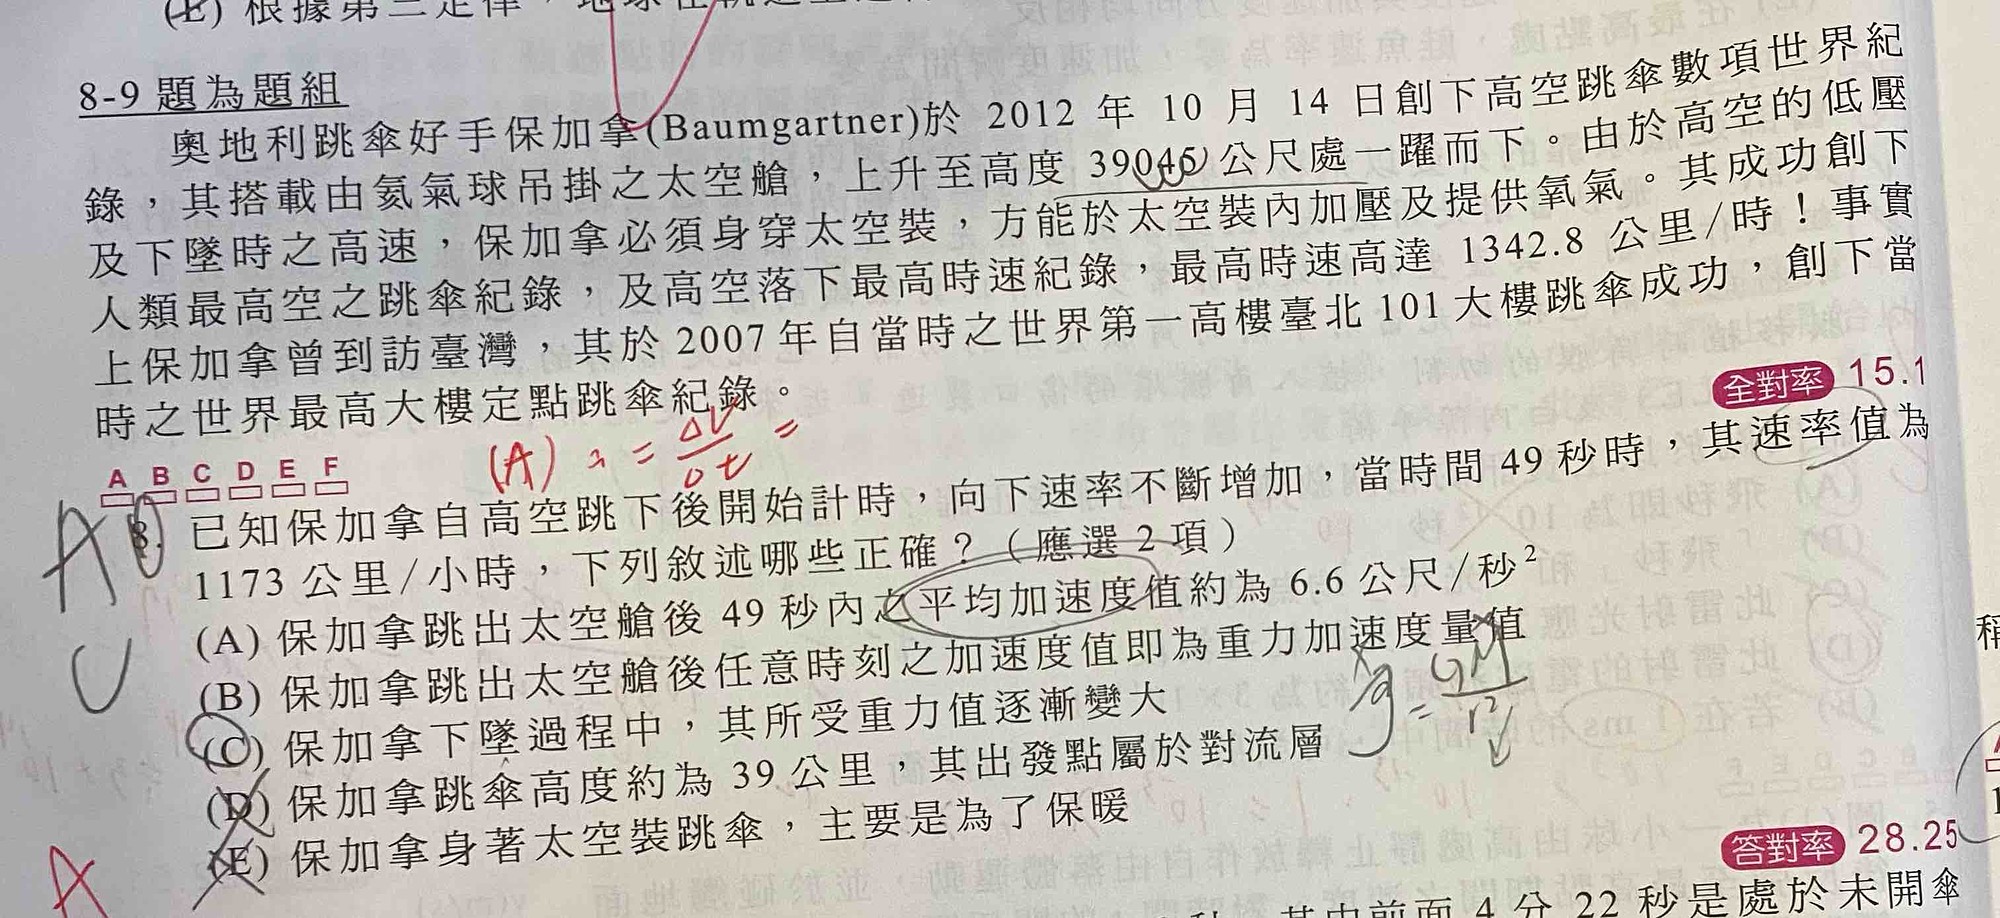 (E) 根據第三定律，地球在軌道
8-9 題為題組
奧地利跳傘好手保加拿(Baumgartner)於 2012 年 10 月 14 日創下高空跳傘數項世界紀
錄，其搭載由氦氣球吊掛之太空艙，上升至高度 39045 公尺處一躍而下。由於高空的低壓
及下墜時之高速，保加拿必須身穿太空裝，方能於太空裝內加壓及提供氧氣。其成功創下
人類最高空之跳傘紀錄，及高空落下最高時速紀錄，最高時速高達 1342.8 公里/時！事實
上保加拿曾到訪臺灣，其於 2007 年自當時之世界第一高樓臺北 101 大樓跳傘成功，創下當
時之世界最高大樓定點跳傘紀錄。
全對率 15.1
(A) a = Δv/Δt =
A B C D E F
8. 已知保加拿自高空跳下後開始計時，向下速率不斷增加，當時間 49 秒時，其速率值為
1173 公里/小時，下列敘述哪些正確？（應選 2 項）
(A) 保加拿跳出太空艙後 49 秒內之平均加速度值約為 6.6 公尺/秒²
(B) 保加拿跳出太空艙後任意時刻之加速度值即為重力加速度量值
(C) 保加拿下墜過程中，其所受重力值逐漸變大
g = GM/r²
(D) 保加拿跳傘高度約為 39 公里，其出發點屬於對流層
(E) 保加拿身著太空裝跳傘，主要是為了保暖
A
C
A
答對率 28.25
其中前面 4 分 22 秒是處於未開傘